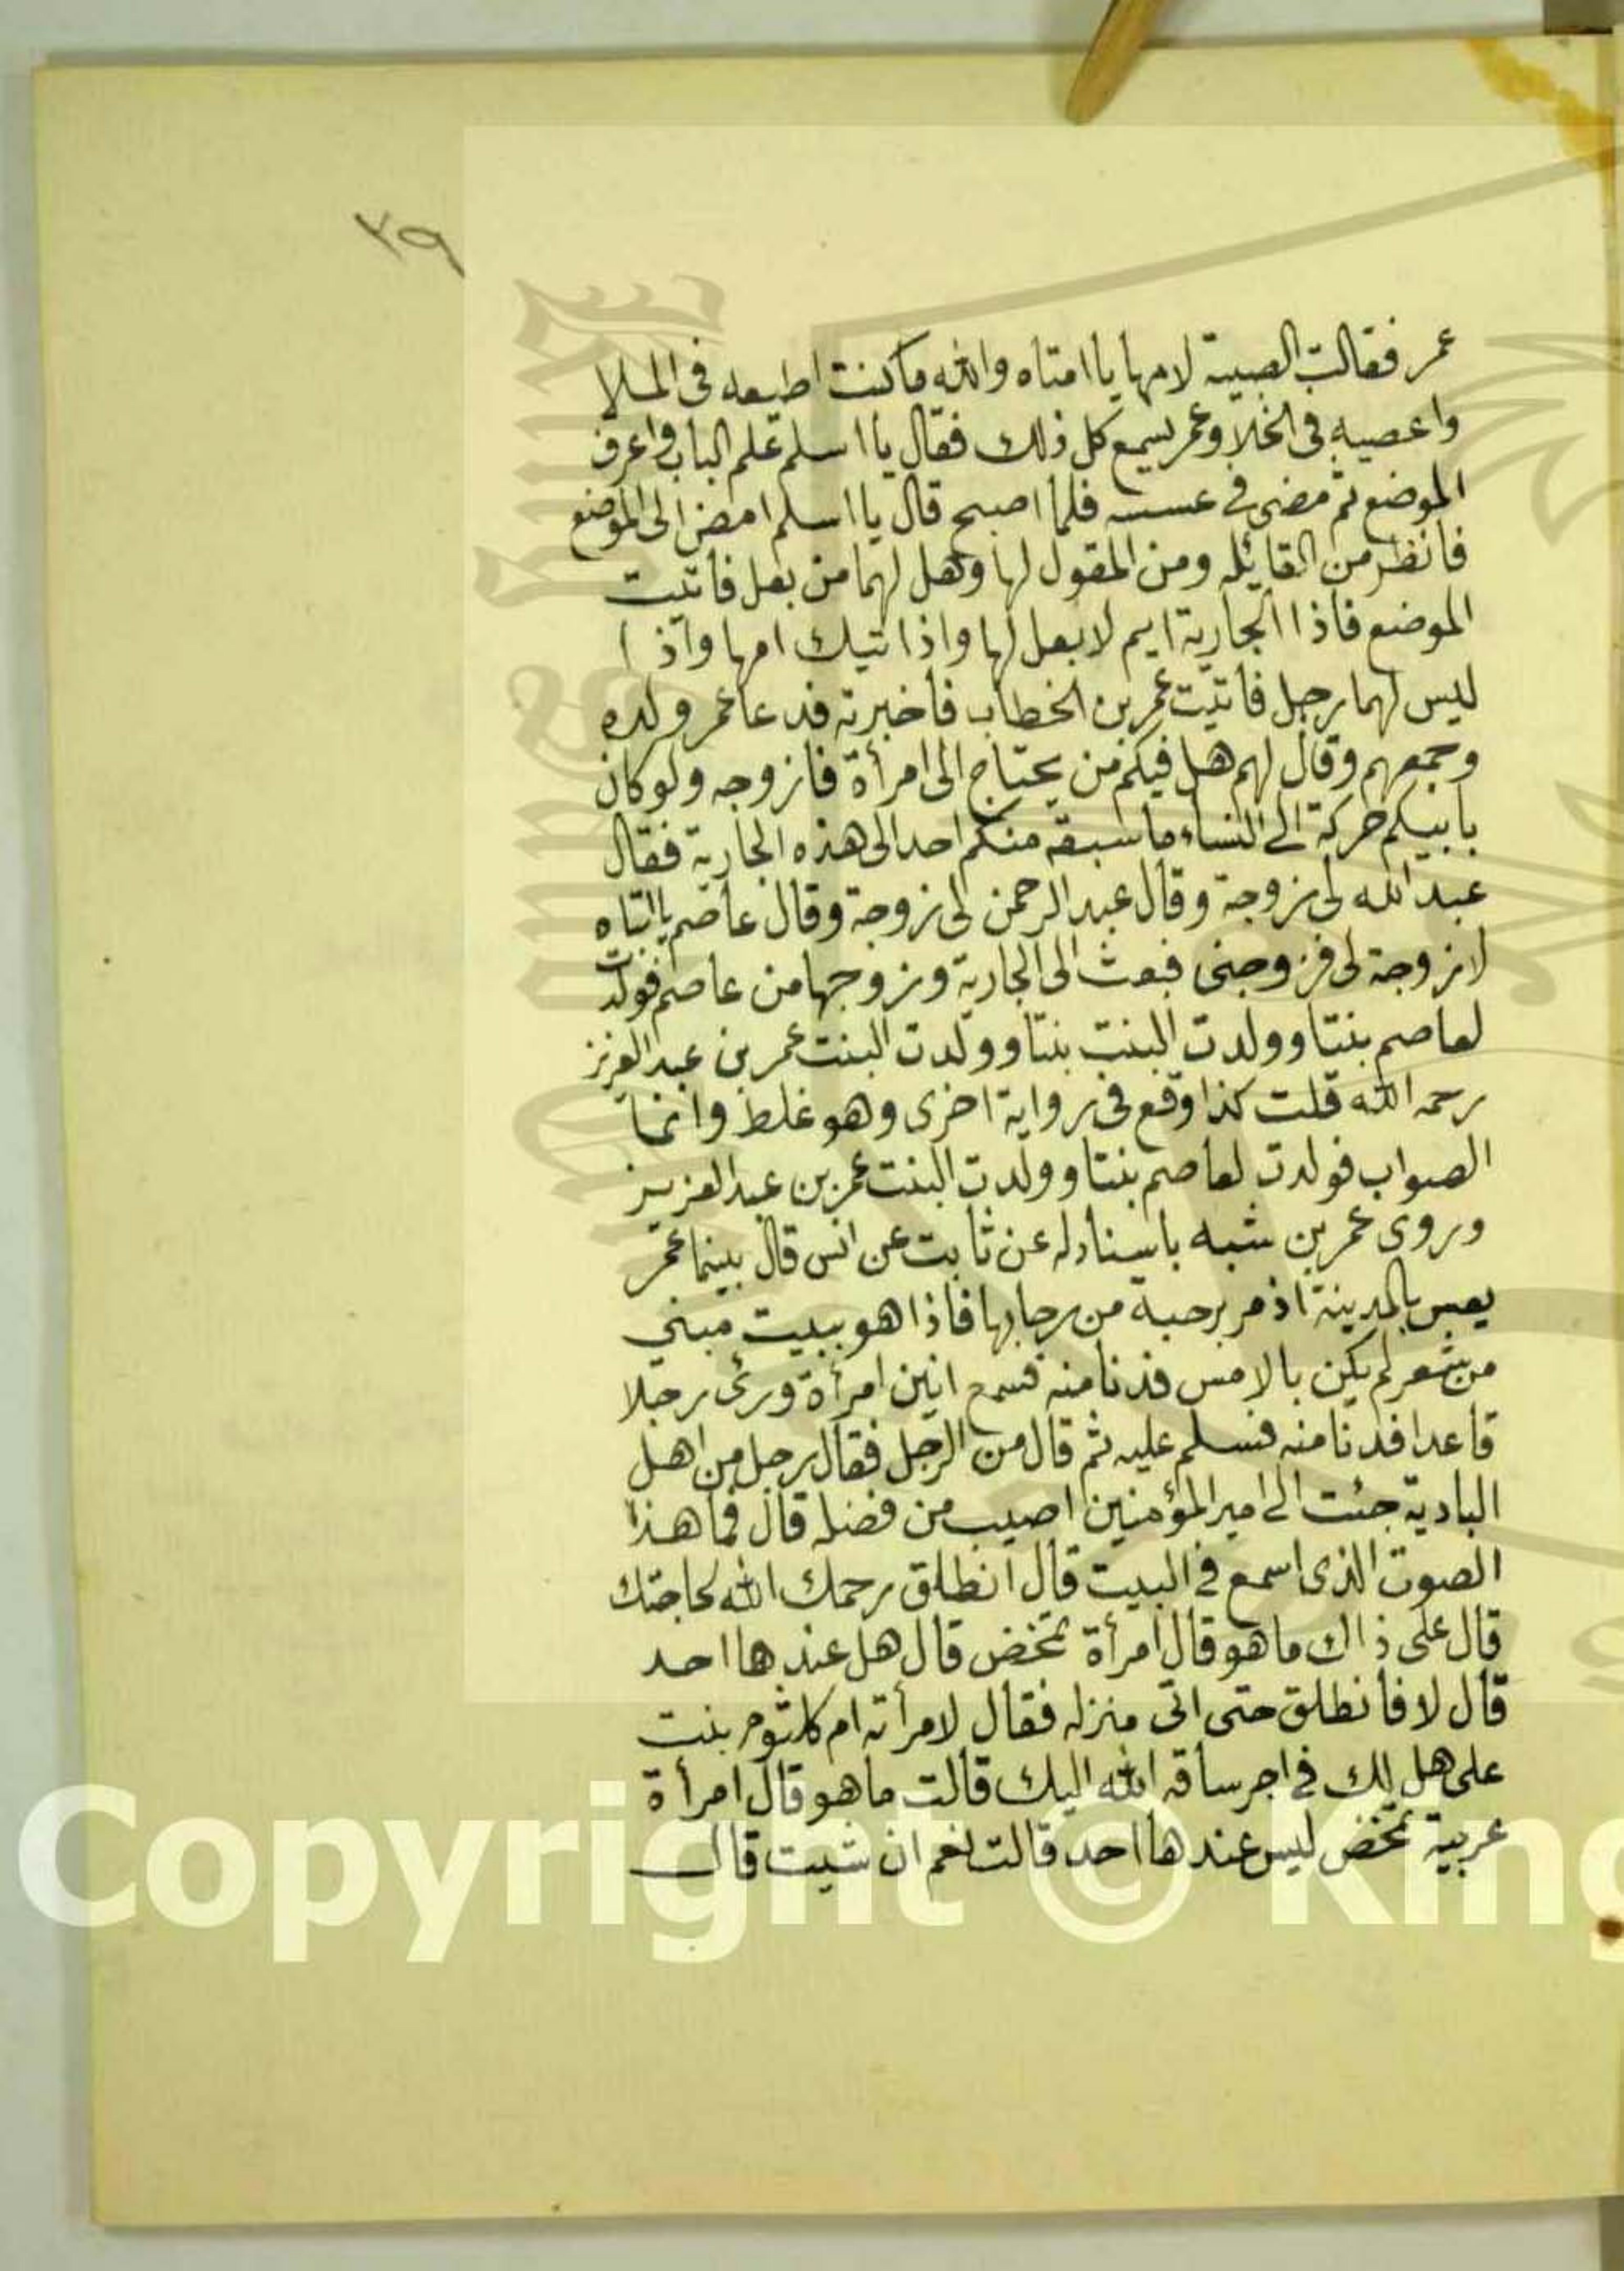 ٣٩
عمر فقالت الصبية لامها يا امتاه والله ما كنت اطيعه في الملا
واعصيه في الخلا وعمر يسمع كل ذلك فقال يا اسلم علم الباب واعرف
الموضع ثم مضى في عسسه فلما اصبح قال يا اسلم امض الى الموضع
فانظر من القايله ومن المقول لها وهل لهما من بعل فاتيت
الموضع فاذا الجارية ايم لا بعل لها واذا تيك امها واذا
ليس لهما رجل فاتيت عمر بن الخطاب فاخبرته فدعا عمر ولده
وجمعهم وقال لهم هل فيكم من يحتاج الى امرأة فازوجه ولو كان
بابيكم حركة الى النساء ما سبقه منكم احد الى هذه الجارية فقال
عبد الله لى زوجة وقال عبد الرحمن لى زوجة وقال عاصم يا ابتاه
لا زوجة لى فزوجنى فبعث الى الجارية وزوجها من عاصم فولدت
لعاصم بنتا وولدت البنت بنتا وولدت البنت عمر بن عبد العزيز
رحمه الله قلت كذا وقع في رواية اخرى وهو غلط وانما
الصواب فولدت لعاصم بنتا وولدت البنت عمر بن عبد العزيز
وروى عمر بن شبه باسناد له عن ثابت عن انس قال بينما عمر
يعس بالمدينة اذ مر برحبة من رحابها فاذا هو ببيت مبني
من شعر لم يكن بالامس فدنا منه فسمع انين امرأة ورئى رجلا
قاعدا فدنا منه فسلم عليه ثم قال من الرجل فقال رجل من اهل
البادية جئت الى امير المؤمنين اصيب من فضله قال فما هذا
الصوت الذى اسمع في البيت قال انطلق رحمك الله لحاجتك
قال على ذاك ما هو قال امرأة تمخض قال هل عندها احد
قال لا فانطلق حتى اتى منزله فقال لامرأته ام كلثوم بنت
على هل لك في اجر ساقه الله اليك قالت ما هو قال امرأة
عربية تمخض ليس عندها احد قالت نعم ان شيت قال
Copyright © King